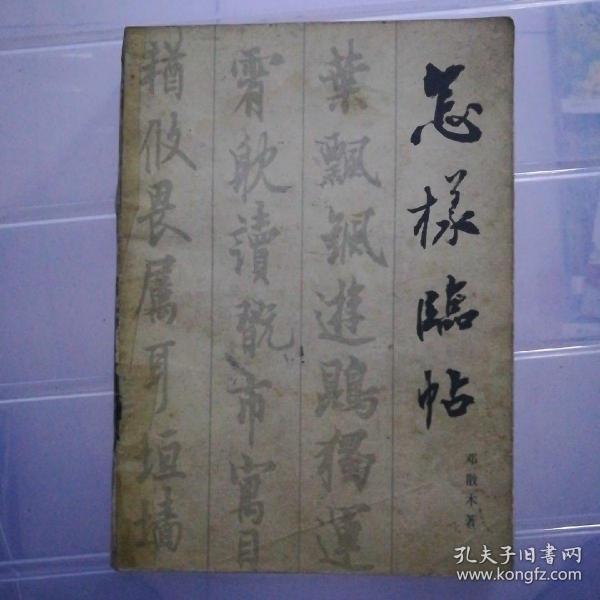 怎樣臨帖
邓散木著
葉飄飖遊鵾獨運
霄耽讀翫市寓目
輶攸畏屬耳垣墻
孔夫子旧书网
www.kongfz.com